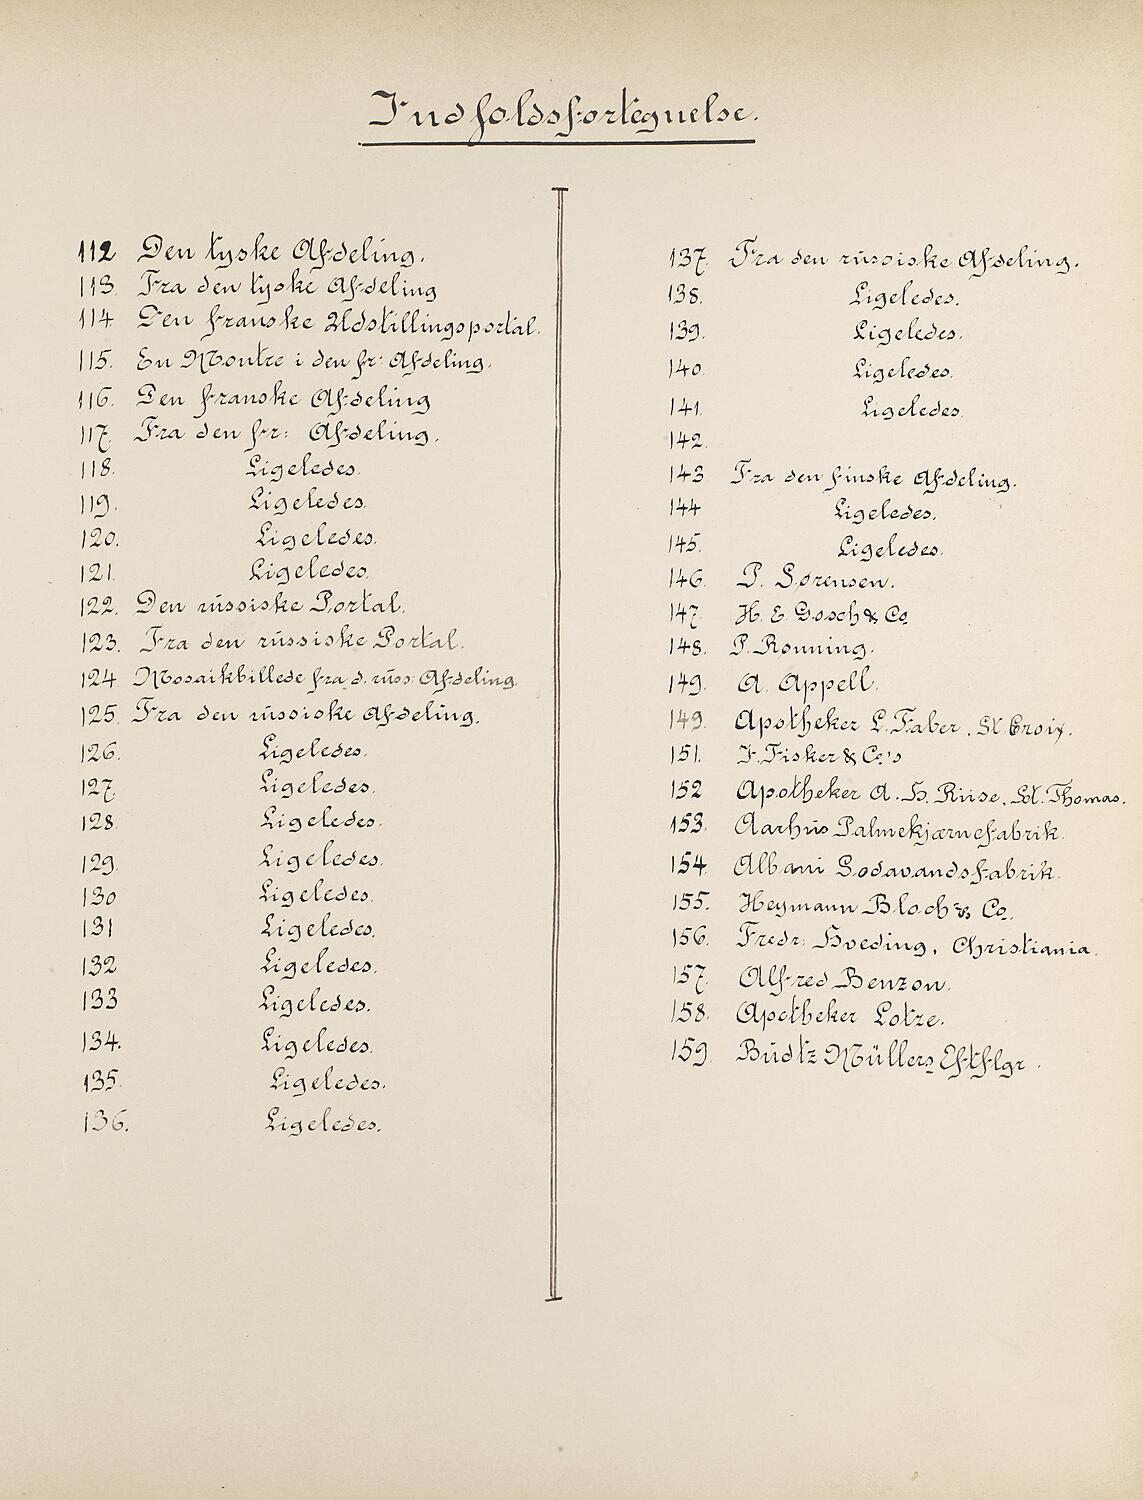 Indholdsfortegnelse.
112 Den tyske Afdeling.
113. Fra den tyske Afdeling
114 Den franske Udstillingsportal.
115. En Montre i den fr: Afdeling.
116. Den franske Afdeling
117. Fra den fr: Afdeling.
118. Ligeledes.
119. Ligeledes.
120. Ligeledes.
121. Ligeledes.
122. Den russiske Portal.
123. Fra den russiske Portal.
124 Mosaikbillede fra d. russ: Afdeling.
125. Fra den russiske Afdeling.
126. Ligeledes.
127. Ligeledes.
128. Ligeledes.
129. Ligeledes.
130 Ligeledes.
131 Ligeledes.
132 Ligeledes.
133 Ligeledes.
134. Ligeledes.
135. Ligeledes.
136. Ligeledes.
137. Fra den russiske Afdeling.
138. Ligeledes.
139. Ligeledes.
140. Ligeledes.
141. Ligeledes.
142.
143 Fra den finske Afdeling.
144 Ligeledes.
145. Ligeledes.
146. P. Sørensen.
147. H. E. Gosch & Co
148. P. Rønning.
149. A. Appell.
149. Apotheker L. Faber, St. Croix.
151. F. Fisker & Co's
152 Apotheker A. H. Riise, St. Thomas.
153. Aarhus Palmekjærnefabrik.
154. Albani Sodavandsfabrik.
155. Heymann Bloch & Co.
156. Fredr: Hveding, Christiania.
157. Alfred Benzon.
158. Apotheker Lotze.
159. Budtz Müllers Eftflgr.